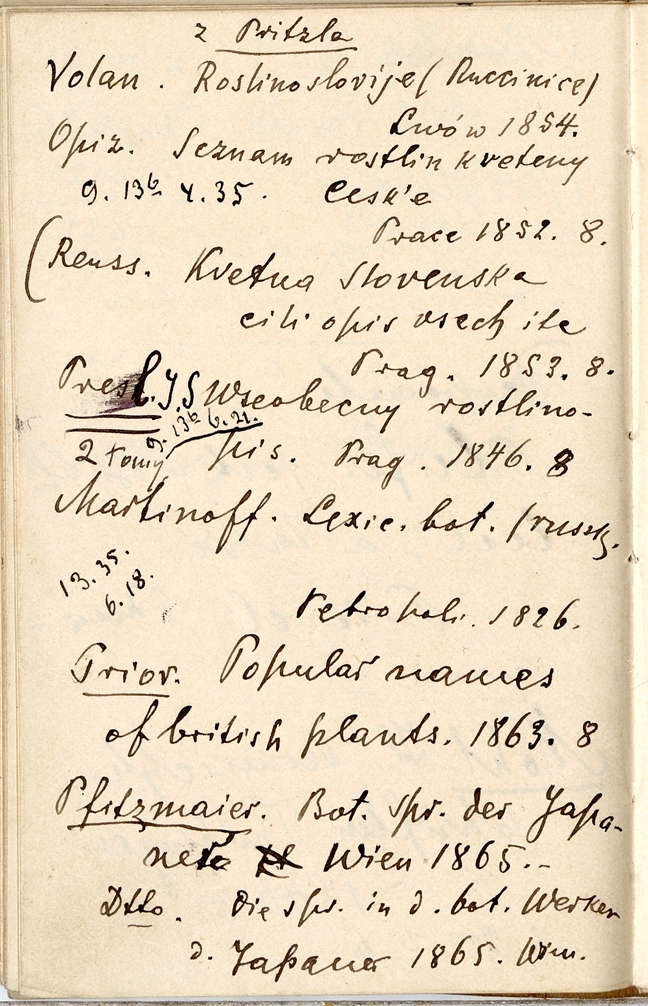 z Pritzla
Volan. Roslinoslovije (Ruccinice)
Lwów 1854.
Opiz. Seznam rostlin kveteny
9. 13b 4.35. Cesk'e
Prace 1852. 8.
(Reuss. Kvetna Slovenska
cili opis vsech ite
Prag. 1853. 8.
Presl. J.S Wseobecny rostlino-
9. 13b 6.21.
2 tomy pis. Prag. 1846. 8
Martinoff. Lexic. bot. (russ.
13.35.
6.18.
Petropoli. 1826.
Prior. Popular names
of british plants. 1863. 8
Pfitzmaier. Bot. spr. der Japa-
Wien 1865.-
Dtto. Die spr. in d. bot. Werken
d. Japaner 1865. Wien.